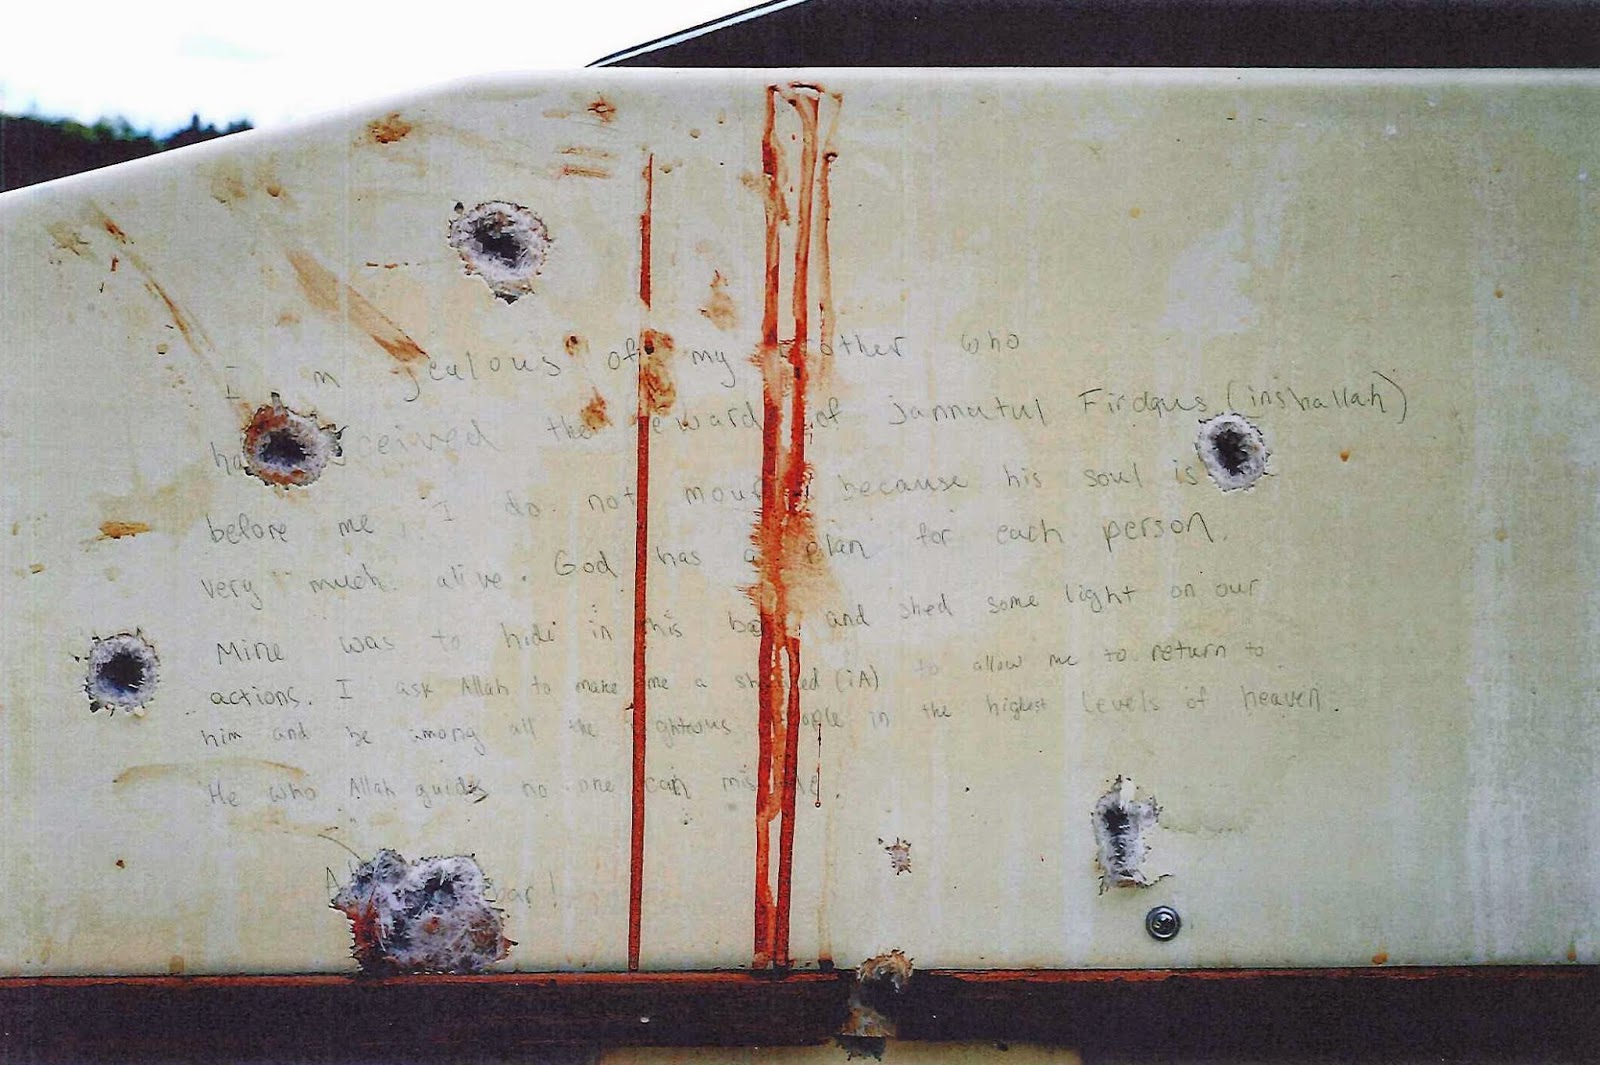 I m jealous of my other who
ha ceived the eward of jannutul Firdaus (inshallah)
before me. I do not mour because his soul is
very much alive. God has a plan for each person.
Mine was to hide in this boat and shed some light on our
actions. I ask Allah to make me a sh ed (iA) to allow me to return to
him and be among all the ighteous people in the highest levels of heaven.
He who Allah guides no one can mis de.
A bar!